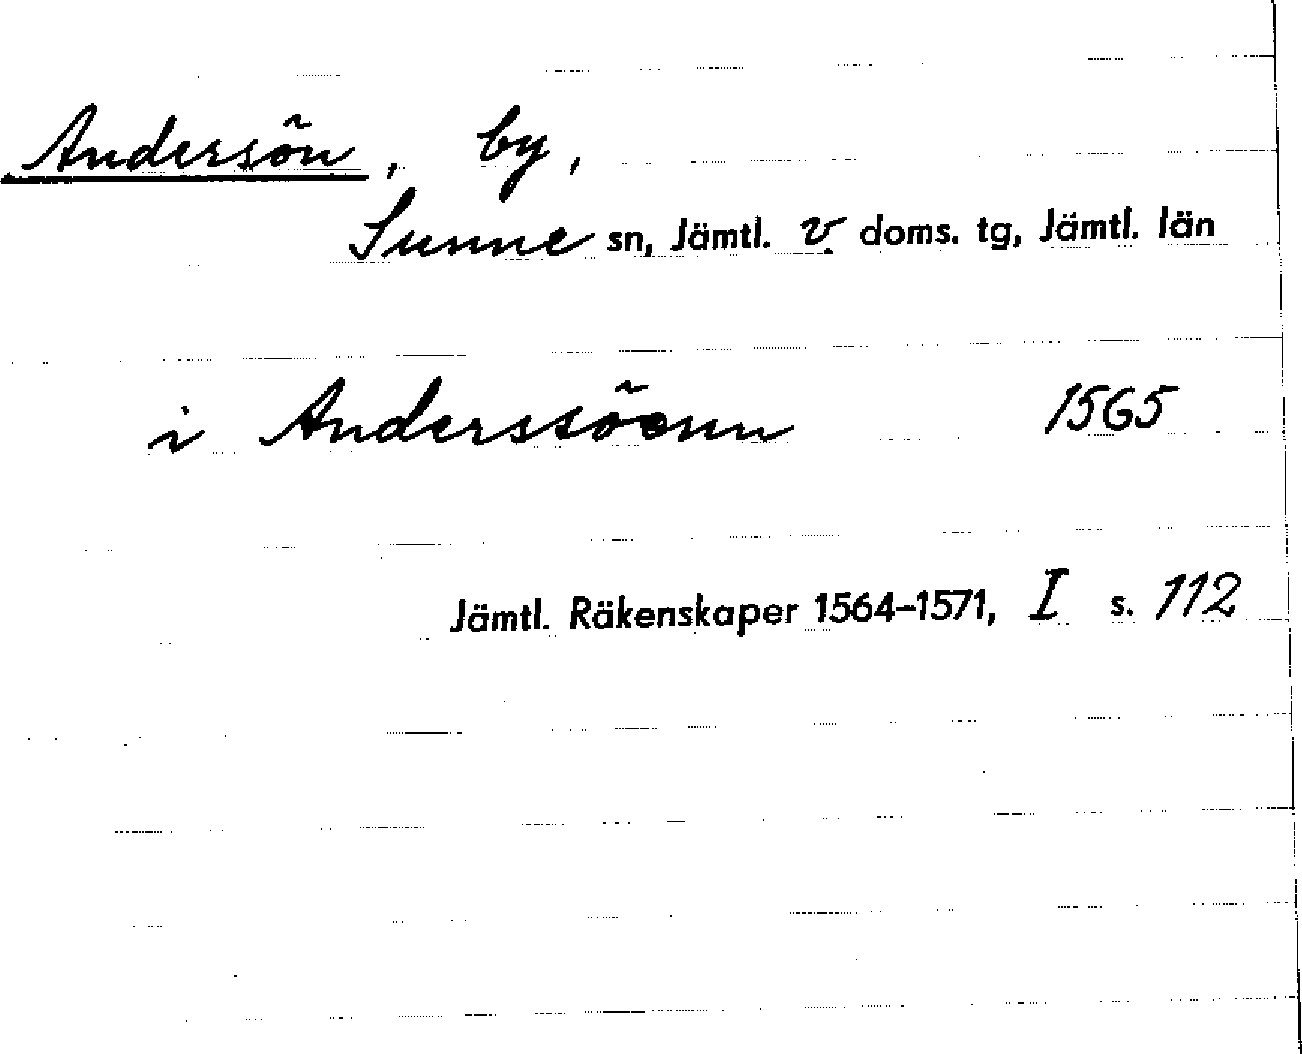 Andersön, by,
Sunne sn, Jämtl. v. doms. tg, Jämtl. län
i Anderssöenn 1565
Jämtl. Räkenskaper 1564-1571, I s. 112